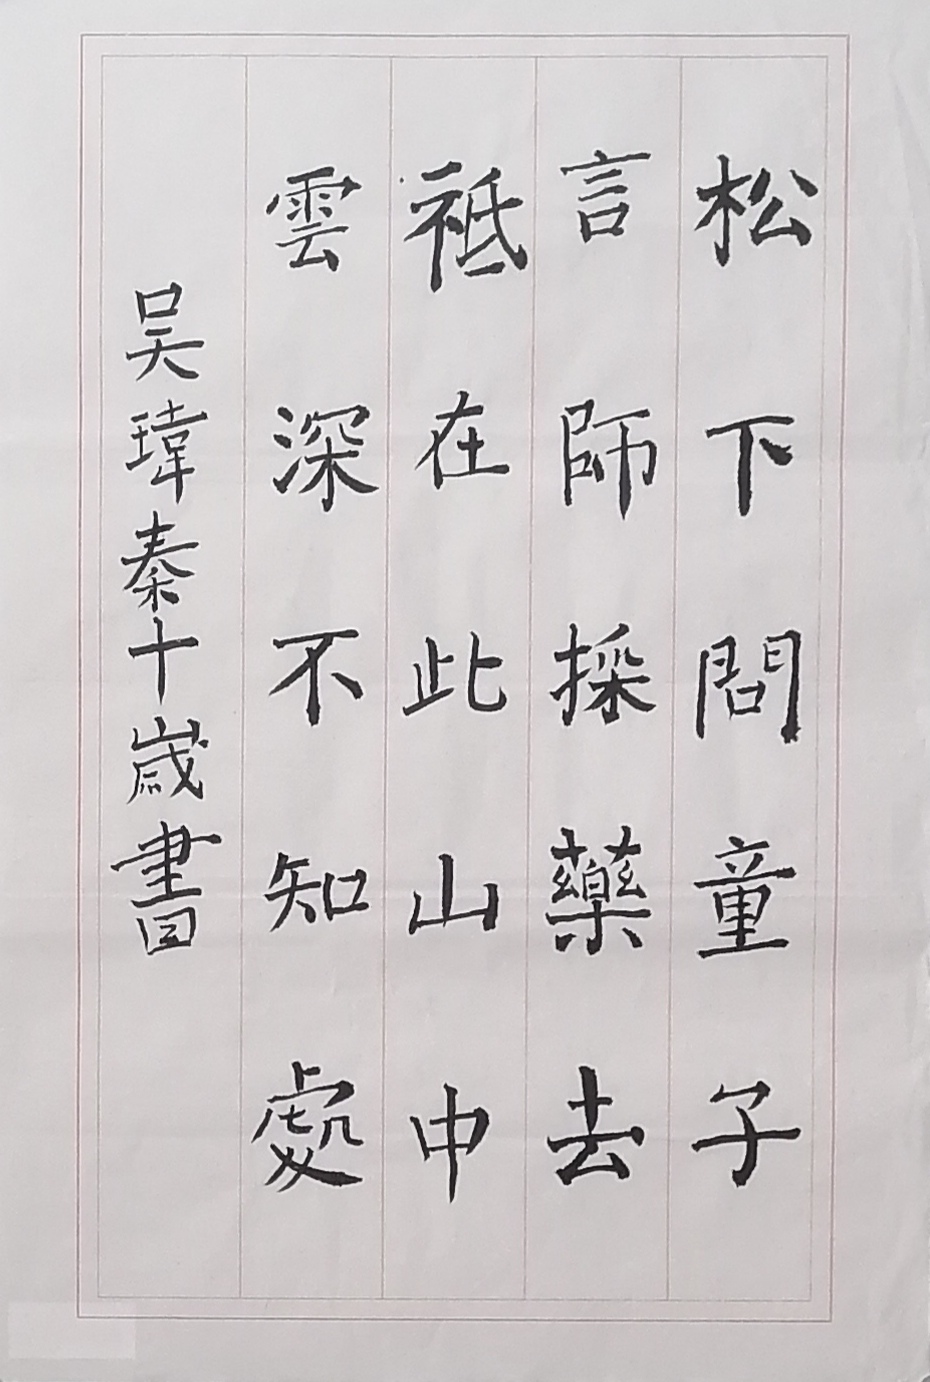 松下問童子
言師採藥去
祗在此山中
雲深不知處
吳瑋秦十歲書